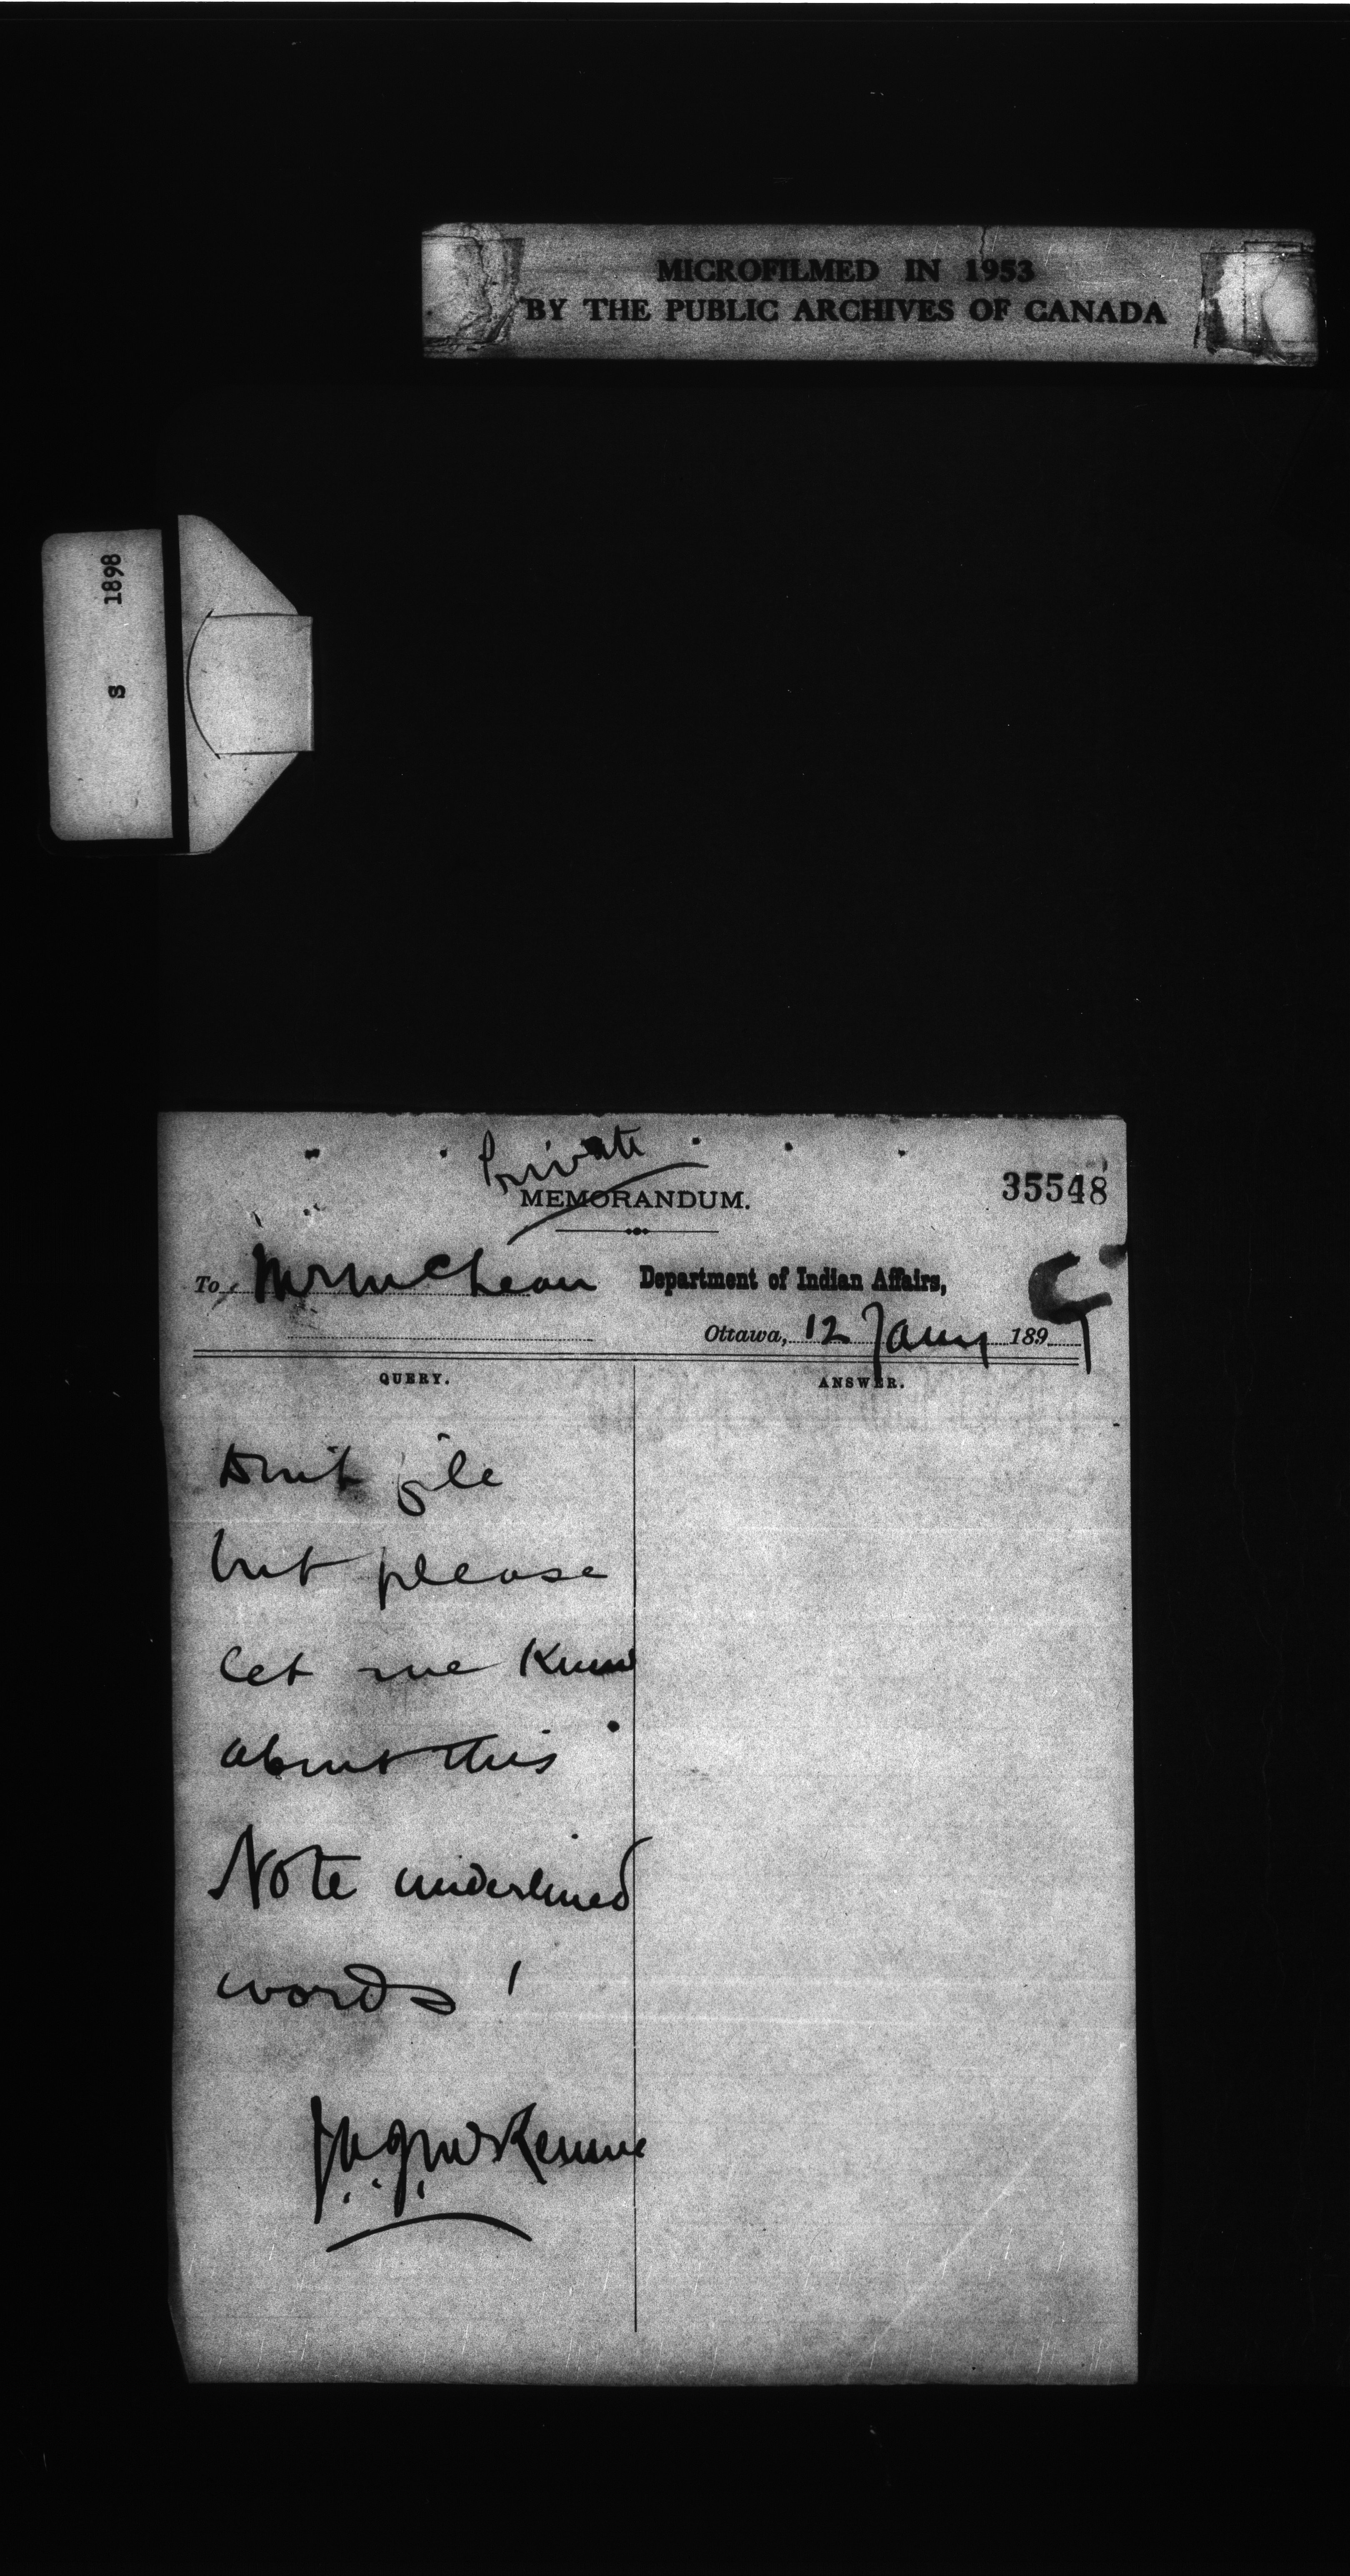 MICROFILMED IN 1953
BY THE PUBLIC ARCHIVES OF CANADA
1898
S
Private
MEMORANDUM.
35548
To Mr McLean Department of Indian Affairs,
C
Ottawa, 12 Jany 1897
QUERY. ANSWER.
Don't file
but please
let me know
about this
Note underlined
words!